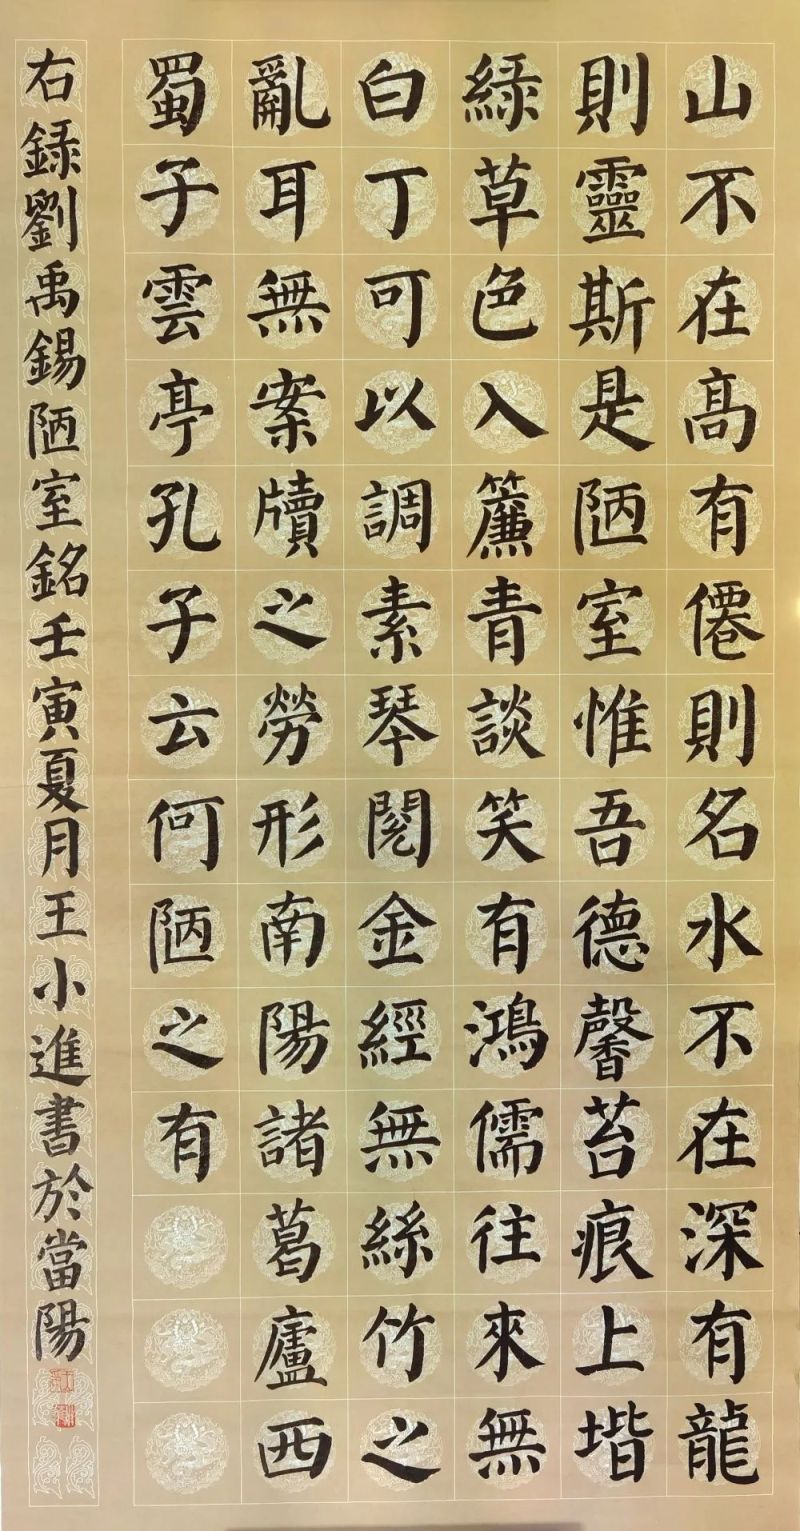 山不在高有僊則名水不在深有龍
則靈斯是陋室惟吾德馨苔痕上堦
綠草色入簾青談笑有鴻儒往來無
白丁可以調素琴閱金經無絲竹之
亂耳無案牘之勞形南陽諸葛廬西
蜀子雲亭孔子云何陋之有
右録劉禹錫陋室銘壬寅夏月王小進書於當陽